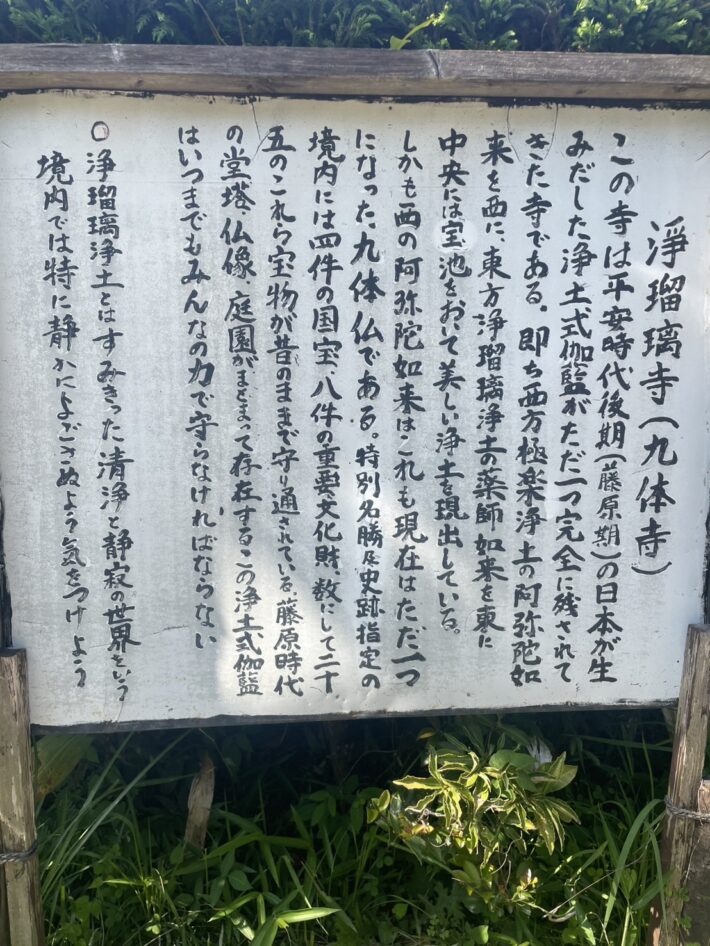 浄瑠璃寺(九体寺)
この寺は平安時代後期(藤原期)の日本が生
みだした浄土式伽藍がただ一つ完全に残されて
きた寺である。即ち西方極楽浄土の阿弥陀如
来を西に、東方浄瑠璃浄土の薬師如来を東に
中央には宝池をおいて美しい浄土を現出している。
しかも西の阿弥陀如来はこれも現在はただ一つ
になった九体仏である。特別名勝及史跡指定の
境内には四件の国宝、八件の重要文化財、数にして二十
五のこれら宝物が昔のままで守り通されている。藤原時代
の堂塔、仏像、庭園がまとまって存在するこの浄土式伽藍
はいつまでもみんなの力で守らなければならない
○浄瑠璃浄土とはすみきった清浄と静寂の世界をいう
境内では特に静かによごさぬよう気をつけよう